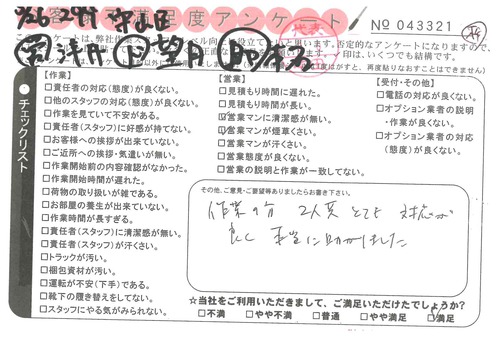 お客様満足度アンケート
No 043321
【作業】
□責任者の対応(態度)が良くない。
□他のスタッフの対応(態度)が良くない。
□作業を見ていて不安がある。
□責任者(スタッフ)に好感が持てない。
□お客様への挨拶が出来ていない。
□ご近所への挨拶・気遣いが無い。
□作業開始前の内容確認がなかった。
□作業開始時間が遅れた。
□荷物の取り扱いが雑である。
□お部屋の養生が出来ていない。
□作業時間が長すぎる。
□責任者(スタッフ)に清潔感が無い。
□責任者(スタッフ)が汗くさい。
□トラックが汚い。
□梱包資材が汚い。
□運転が不安(下手)である。
□靴下の履き替えをしてない。
□スタッフにやる気がみられない。
【営業】
□見積もり時間に遅れた。
□見積もり時間が長い。
□営業マンに清潔感が無い。
□営業マンが煙草くさい。
□営業マンが汗くさい。
□営業態度が良くない。
□営業の説明と作業が一致してない。
【受付・その他】
□電話の対応が良くない。
□オプション業者の説明
・作業が良くない。
□オプション業者の対応
(態度)が良くない。
チェックリスト
その他、ご意見・ご要望等ありましたらお書き下さい。
作業の方 2人共 とても 対応が
良く 本当に助かりました
☆当社をご利用いただきまして、ご満足いただけたでしょうか？
□不満 □やや不満 □普通 □やや満足 □満足